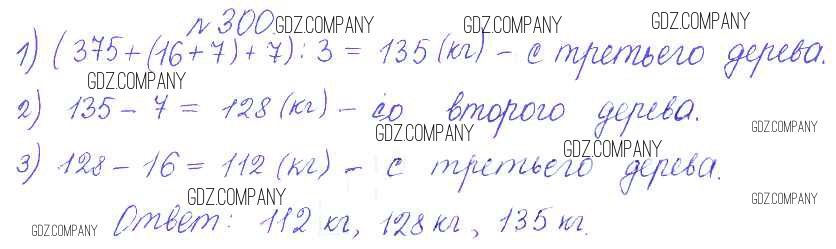 № 300 GDZ.COMPANY GDZ.COMPANY GDZ.COMPANY
1) (375+(16+7)+7):3 = 135 (кг) - с третьего дерева.
GDZ.COMPANY
2) 135 - 7 = 128 (кг) - со второго дерева.
GDZ.COMPANY GDZ.COMPANY
3) 128 - 16 = 112 (кг) - с третьего дерева.
GDZ.COMPANY
GDZ.COMPANY GDZ.COMPANY
Ответ: 112 кг, 128 кг, 135 кг.
GDZ.COMPANY